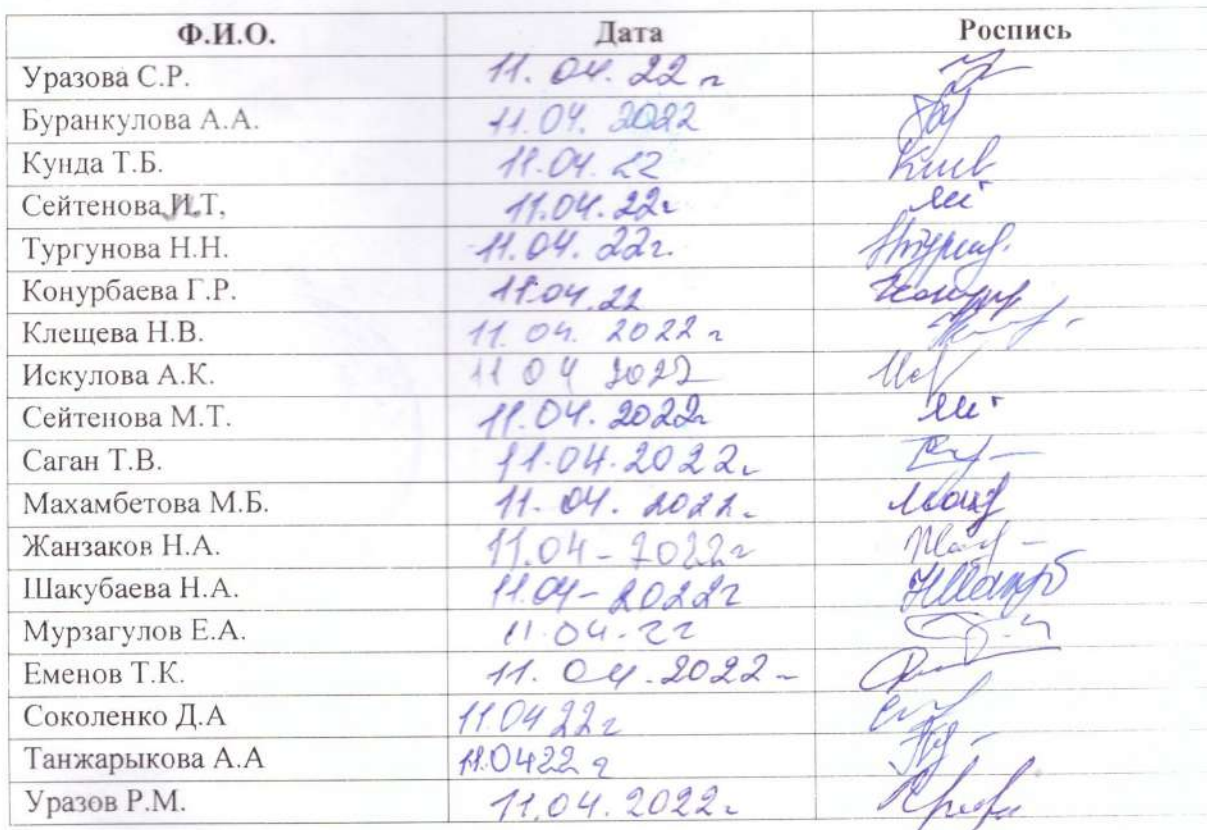 Ф.И.О. Дата Роспись
Уразова С.Р. 11.04.22 г
Буранкулова А.А. 11.04.2022
Кунда Т.Б. 11.04.22
Сейтенова И.Т, 11.04.22г
Тургунова Н.Н. 11.04.22г.
Конурбаева Г.Р. 11.04.22
Клещева Н.В. 11.04.2022 г
Искулова А.К. 11 04 2022
Сейтенова М.Т. 11.04.2022г
Саган Т.В. 11.04.2022г
Махамбетова М.Б. 11.04.2022г
Жанзаков Н.А. 11.04-2022г
Шакубаева Н.А. 11.04-2022г
Мурзагулов Е.А. 11.04.22
Еменов Т.К. 11.04.2022г
Соколенко Д.А 11.04 22г
Танжарыкова А.А 11.0422 г
Уразов Р.М. 11.04.2022г